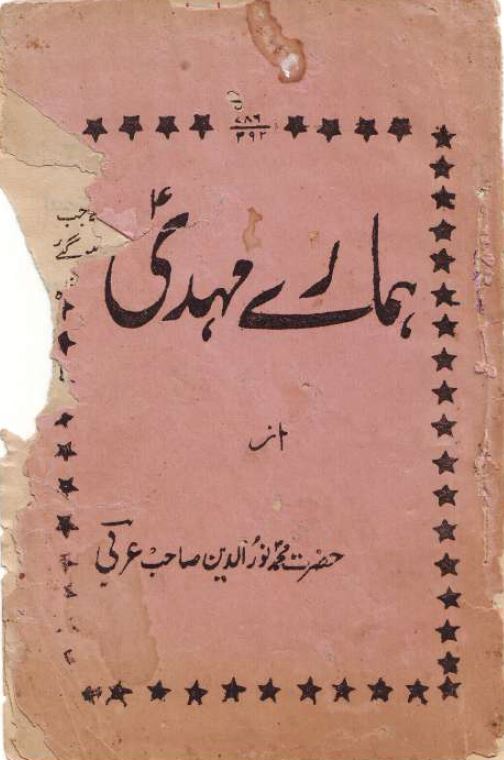 ۷۸۶
۳۹۲
ہمارے مہدیؑ
از
حضرت محمد نورالدین صاحب عربی